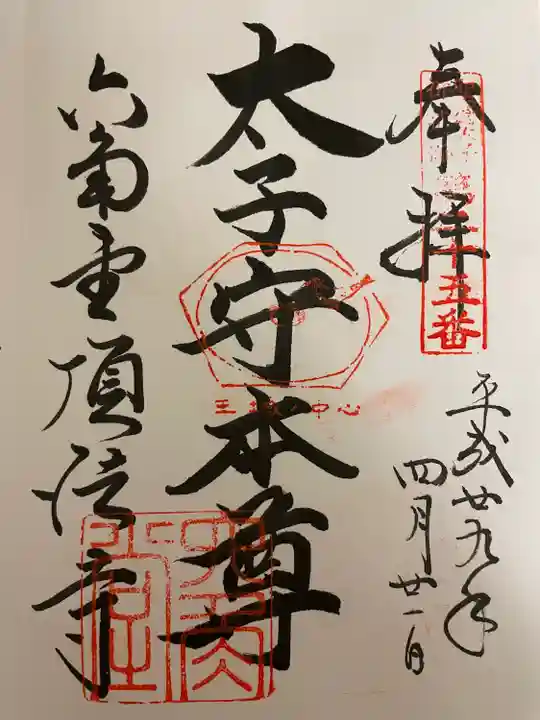 奉拝
十五番
平成廿九年
四月廿一日
太子守本尊
中心
六角堂頂法寺
六角堂